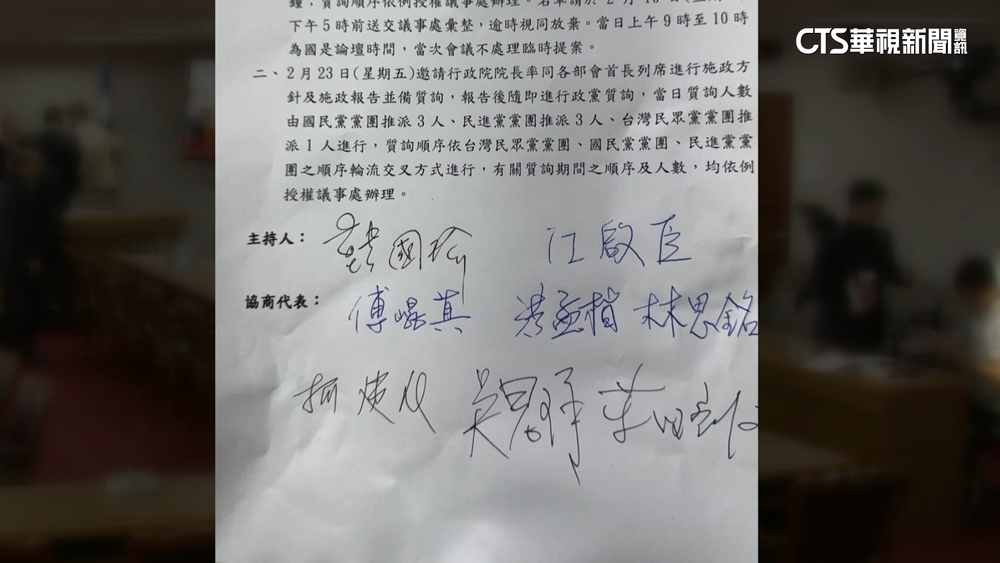 CTS華視新聞資訊
鐘，質詢順序依例授權議事處辦理。名單請於2月
下午5時前送交議事處彙整，逾時視同放棄。當日上午9時至10時
為國是論壇時間，當次會議不處理臨時提案。
二、2月23日(星期五)邀請行政院院長率同各部會首長列席進行施政方
針及施政報告並備質詢，報告後隨即進行政黨質詢，當日質詢人數
由國民黨黨團推派3人、民進黨黨團推派3人、台灣民眾黨黨團推
派1人進行，質詢順序依台灣民眾黨黨團、國民黨黨團、民進黨黨
團之順序輪流交叉方式進行，有關質詢期間之順序及人數，均依例
授權議事處辦理。
主持人：韓國瑜 江啟臣
協商代表：傅崐萁 洪孟楷 林思銘
柯建銘 吳